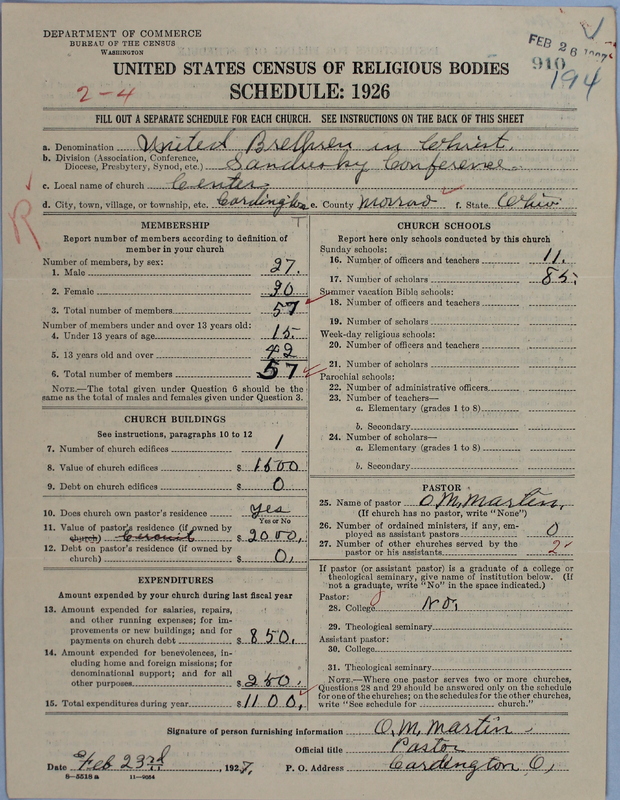 DEPARTMENT OF COMMERCE
BUREAU OF THE CENSUS
WASHINGTON
FEB 26 1927
910
194
UNITED STATES CENSUS OF RELIGIOUS BODIES
2-4
SCHEDULE: 1926
FILL OUT A SEPARATE SCHEDULE FOR EACH CHURCH. SEE INSTRUCTIONS ON THE BACK OF THIS SHEET
a. Denomination United Brethren in Christ.
b. Division (Association, Conference, Diocese, Presbytery, Synod, etc.) Sandusky Conference
c. Local name of church Center
d. City, town, village, or township, etc. Cardington e. County Morrow f. State Ohio
R
T
MEMBERSHIP
Report number of members according to definition of
member in your church
Number of members, by sex:
1. Male 27.
2. Female 30
3. Total number of members 57
Number of members under and over 13 years old:
4. Under 13 years of age 15.
5. 13 years old and over 42
6. Total number of members 57
NOTE.—The total given under Question 6 should be the
same as the total of males and females given under Question 3.
CHURCH BUILDINGS
See instructions, paragraphs 10 to 12
7. Number of church edifices 1
8. Value of church edifices $ 1500
9. Debt on church edifices $ 0
10. Does church own pastor's residence yes
Yes or No
11. Value of pastor's residence (if owned by
church) Circuit $ 2000.
12. Debt on pastor's residence (if owned by
church) $ 0.
EXPENDITURES
Amount expended by your church during last fiscal year
13. Amount expended for salaries, repairs,
and other running expenses; for im-
provements or new buildings; and for
payments on church debt $ 850.
14. Amount expended for benevolences, in-
cluding home and foreign missions; for
denominational support; and for all
other purposes $ 250.
15. Total expenditures during year $ 1100.
CHURCH SCHOOLS
Report here only schools conducted by this church
Sunday schools:
16. Number of officers and teachers 11.
17. Number of scholars 85.
Summer vacation Bible schools:
18. Number of officers and teachers
19. Number of scholars
Week-day religious schools:
20. Number of officers and teachers
21. Number of scholars
Parochial schools:
22. Number of administrative officers
23. Number of teachers—
a. Elementary (grades 1 to 8)
b. Secondary
24. Number of scholars—
a. Elementary (grades 1 to 8)
b. Secondary
PASTOR
25. Name of pastor O. M. Martin.
(If church has no pastor, write "None")
26. Number of ordained ministers, if any, em-
ployed as assistant pastors 0
27. Number of other churches served by the
pastor or his assistants 2
If pastor (or assistant pastor) is a graduate of a college or
theological seminary, give name of institution below. (If
not a graduate, write "No" in the space indicated.)
Pastor:
28. College No.
29. Theological seminary
Assistant pastor:
30. College
31. Theological seminary
NOTE.—Where one pastor serves two or more churches,
Questions 28 and 29 should be answered only on the schedule
for one of the churches; on the schedules for the other churches,
write "See schedule for church."
Signature of person furnishing information O. M. Martin
Official title Pastor
Date Feb 23rd, 1927. P. O. Address Cardington O.
8—5518 a 11—9054